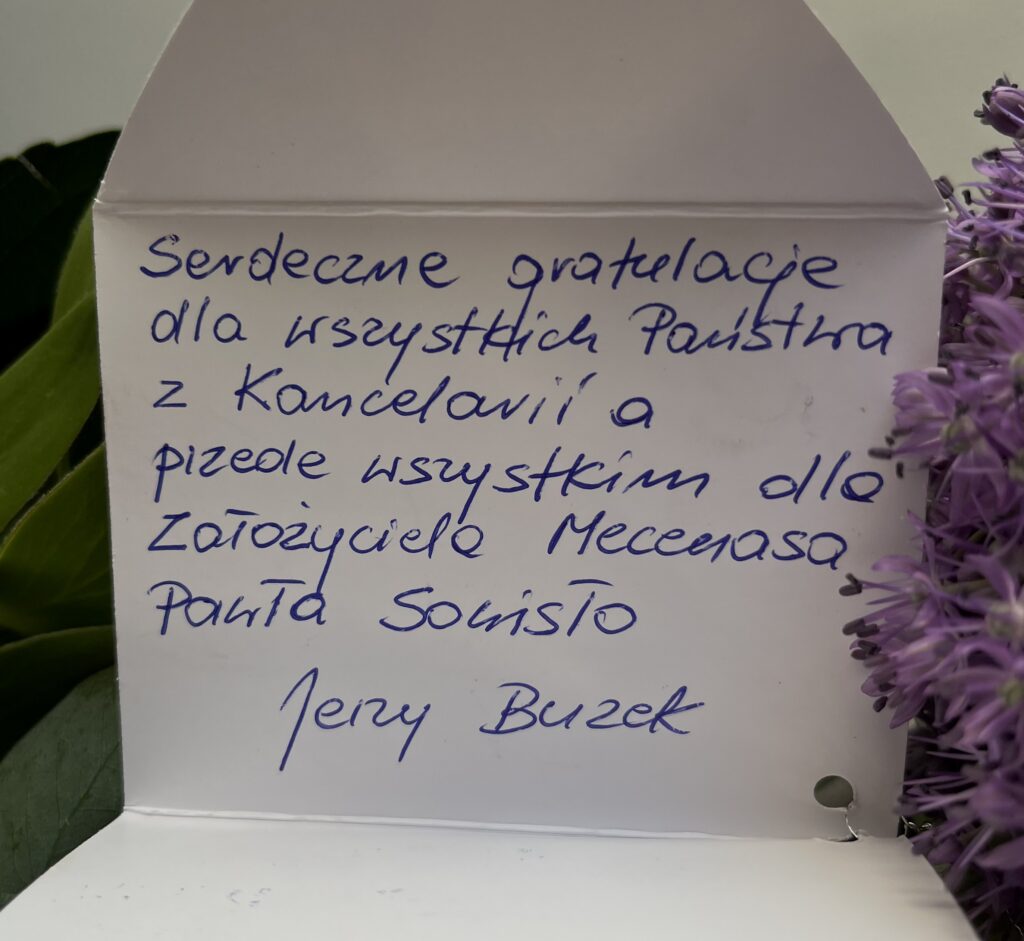 Serdeczne gratulacje
dla wszystkich Państwa
z Kancelarii a
przede wszystkim dla
Założyciela Mecenasa
Pawła Sowisło
Jerzy Buzek